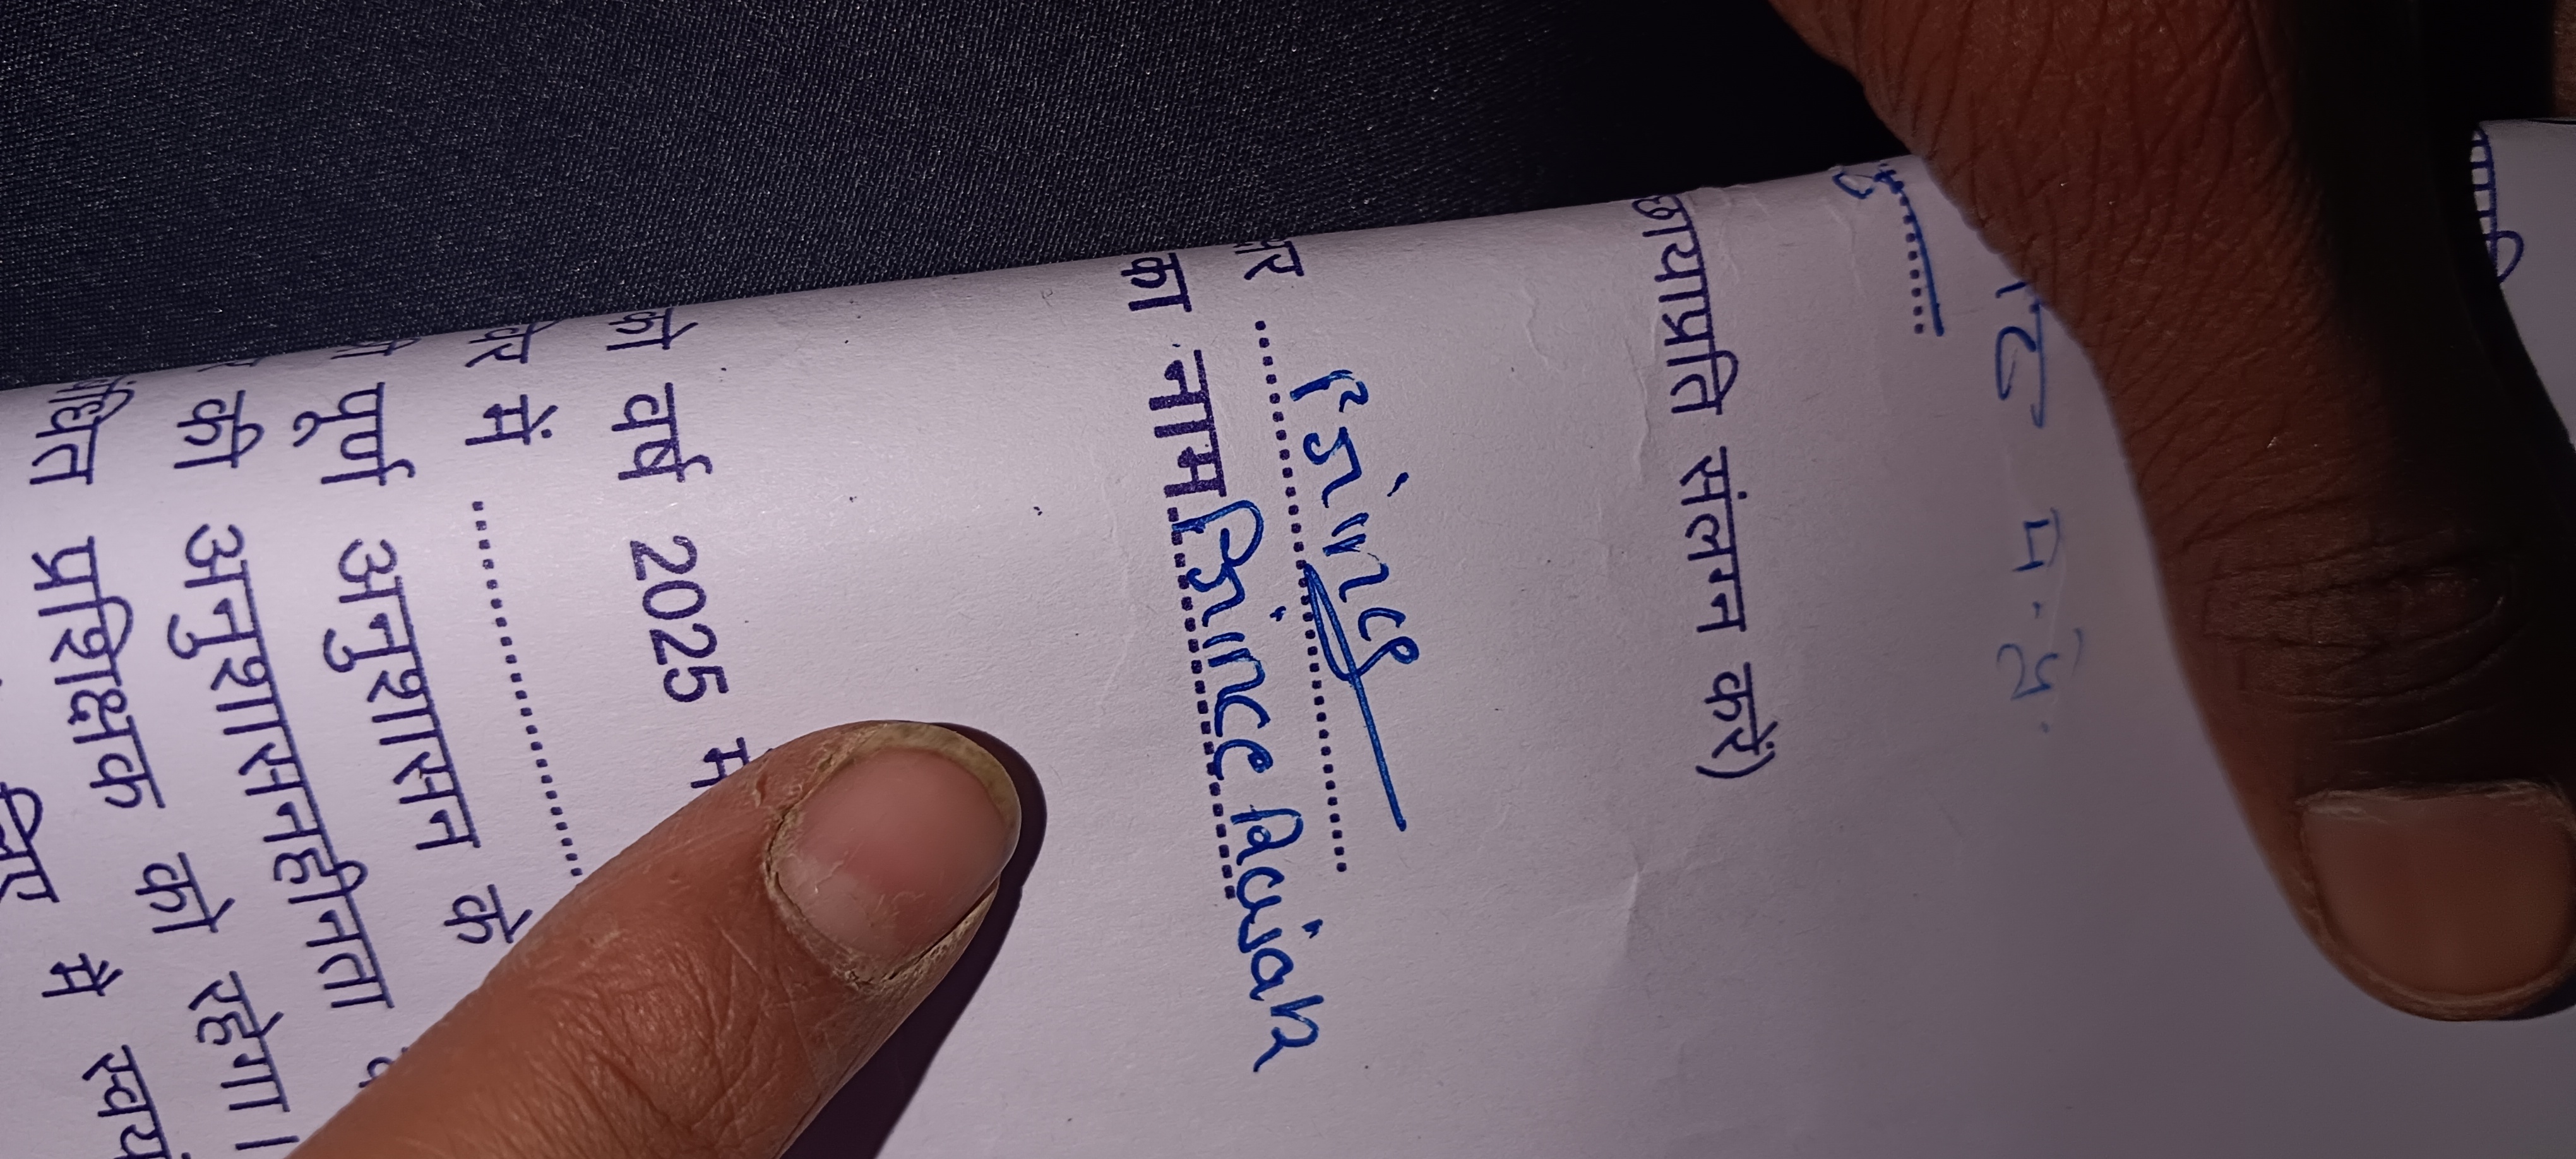 म.प्र.
छायाप्रति संलग्न करें)
Prince
का नाम Prince Raisah
को वर्ष 2025 में
में
पूर्ण अनुशासन के
की अनुशासनहीनता
प्रशिक्षक को रहेगा।
लिए मैं स्वयं